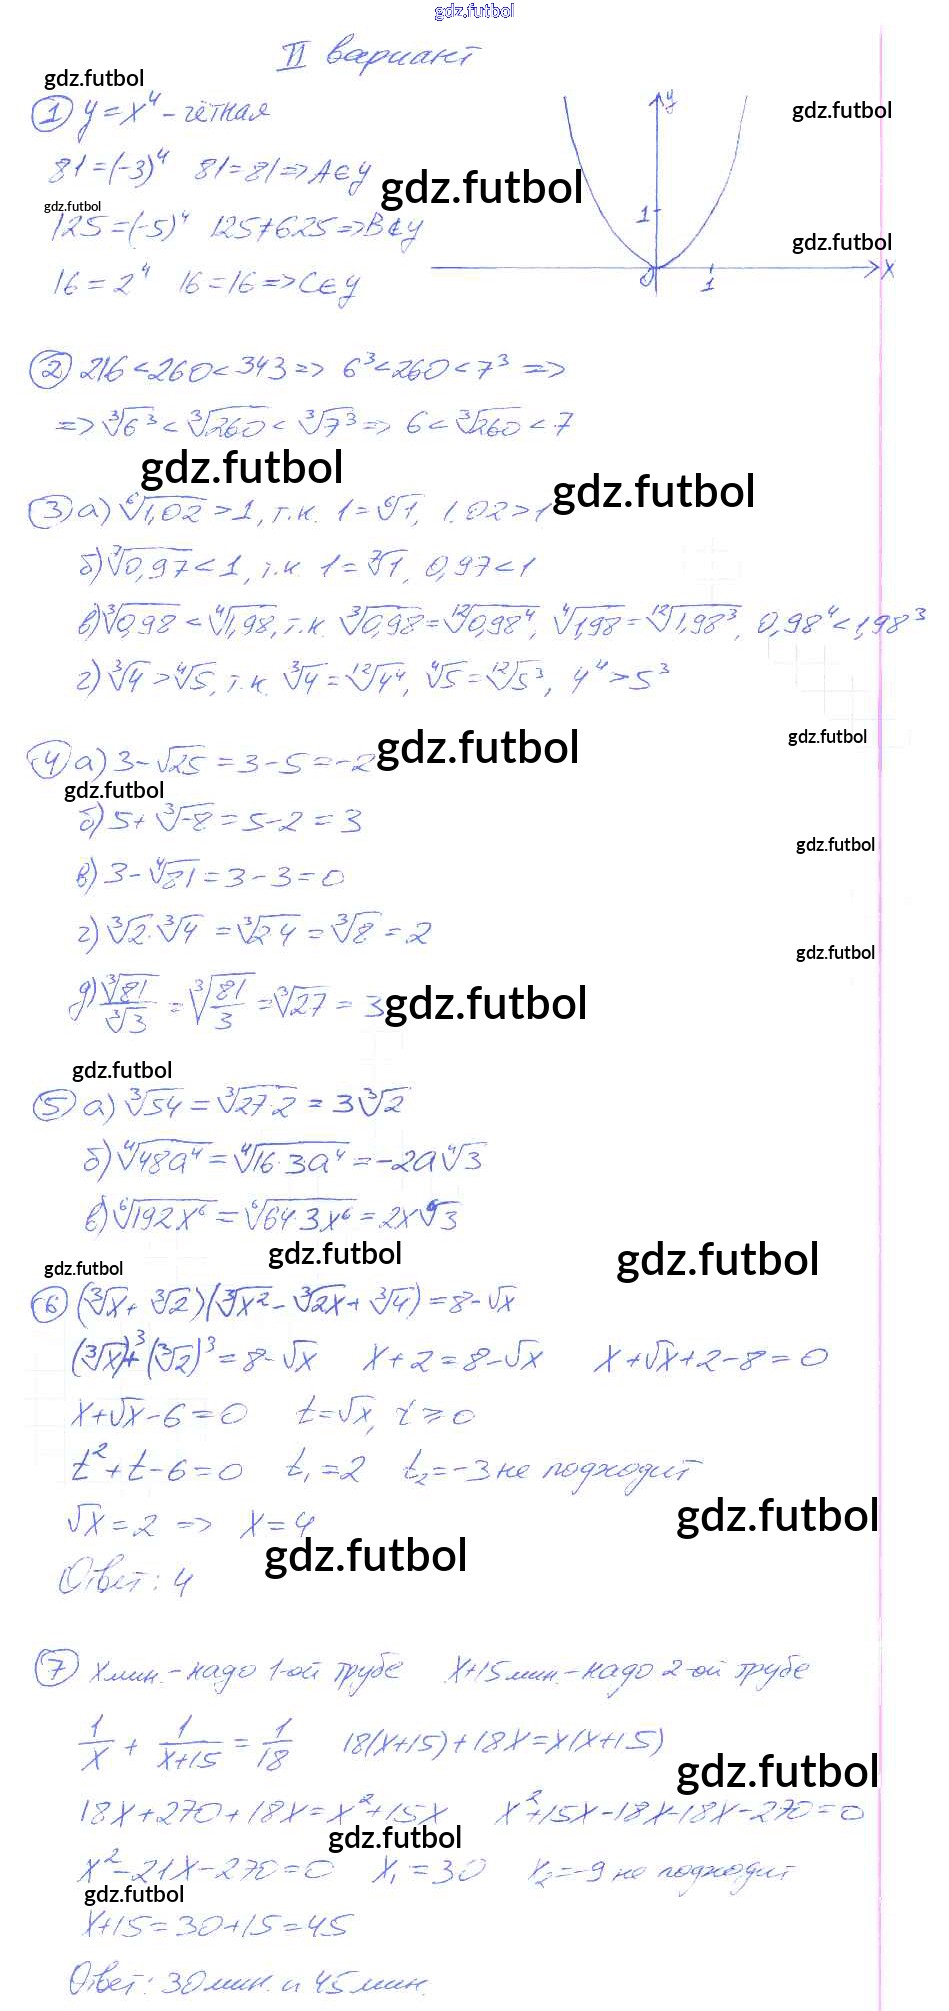 gdz.futbol
II вариант
gdz.futbol
① y = x⁴ – чётная
gdz.futbol
y
81 = (-3)⁴ 81 = 81 => A ∈ y
gdz.futbol
gdz.futbol
125 = (-5)⁴ 125 ≠ 625 => B ∉ y
1
gdz.futbol
16 = 2⁴ 16 = 16 => C ∈ y
0 1 x
② 216 < 260 < 343 => 6³ < 260 < 7³ =>
=> ∛6³ < ∛260 < ∛7³ => 6 < ∛260 < 7
gdz.futbol
gdz.futbol
③ а) ⁶√1,02 > 1, т.к. 1 = ⁶√1, 1.02 > 1
б) ⁷√0,97 < 1, т.к. 1 = ⁷√1, 0,97 < 1
в) ∛0,98 < ⁴√1,98, т.к. ∛0,98 = ¹²√0,98⁴, ⁴√1,98 = ¹²√1,98³, 0,98⁴ < 1,98³
г) ∛4 > ⁴√5, т.к. ∛4 = ¹²√4⁴, ⁴√5 = ¹²√5³, 4⁴ > 5³
gdz.futbol
④ а) 3 - √25 = 3 - 5 = -2
gdz.futbol
gdz.futbol
б) 5 + ∛-8 = 5 - 2 = 3
gdz.futbol
в) 3 - ⁴√81 = 3 - 3 = 0
г) ∛2 · ∛4 = ∛2·4 = ∛8 = 2
gdz.futbol
д) ∛81/∛3 = ∛(81/3) = ∛27 = 3
gdz.futbol
gdz.futbol
⑤ а) ∛54 = ∛27·2 = 3∛2
б) ⁴√48a⁴ = ⁴√16·3a⁴ = -2a⁴√3
в) ⁶√192x⁶ = ⁶√64·3x⁶ = 2x⁶√3
gdz.futbol
gdz.futbol
gdz.futbol
⑥ (∛x + ∛2)(∛x² - ∛2x + ∛4) = 8 - √x
(∛x)³ + (∛2)³ = 8 - √x x + 2 = 8 - √x x + √x + 2 - 8 = 0
x + √x - 6 = 0 t = √x, t ⩾ 0
t² + t - 6 = 0 t₁ = 2 t₂ = -3 не подходит
gdz.futbol
√x = 2 => x = 4
gdz.futbol
Ответ: 4
⑦ x мин. - надо 1-ой трубе x+15 мин. - надо 2-ой трубе
1/x + 1/(x+15) = 1/18 18(x+15) + 18x = x(x+15)
gdz.futbol
18x + 270 + 18x = x² + 15x x² + 15x - 18x - 18x - 270 = 0
gdz.futbol
x² - 21x - 270 = 0 x₁ = 30 x₂ = -9 не подходит
gdz.futbol
x+15 = 30+15 = 45
Ответ: 30 мин. и 45 мин.